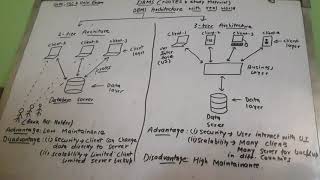 DBMS (NOTES & Study Material)
DBMS Architecture with real world
2-tier Architecture
client-1
client-2
client-3
Client layer
Data layer
Database Server
Advantage: Low Maintenance
Disadvantage: (i) security → client can change data directly to Server
(ii) scalability → limited client limited server backup
3-tier Architecture
client-1
client-2
client-3
client-4
Client layer
Business Layer
Data Server
Data layer
Advantage: (i) security → User interact with GUI
(ii) scalability → Many clients
Many server for backup in diff. countries
Disadvantage: High Maintenance.